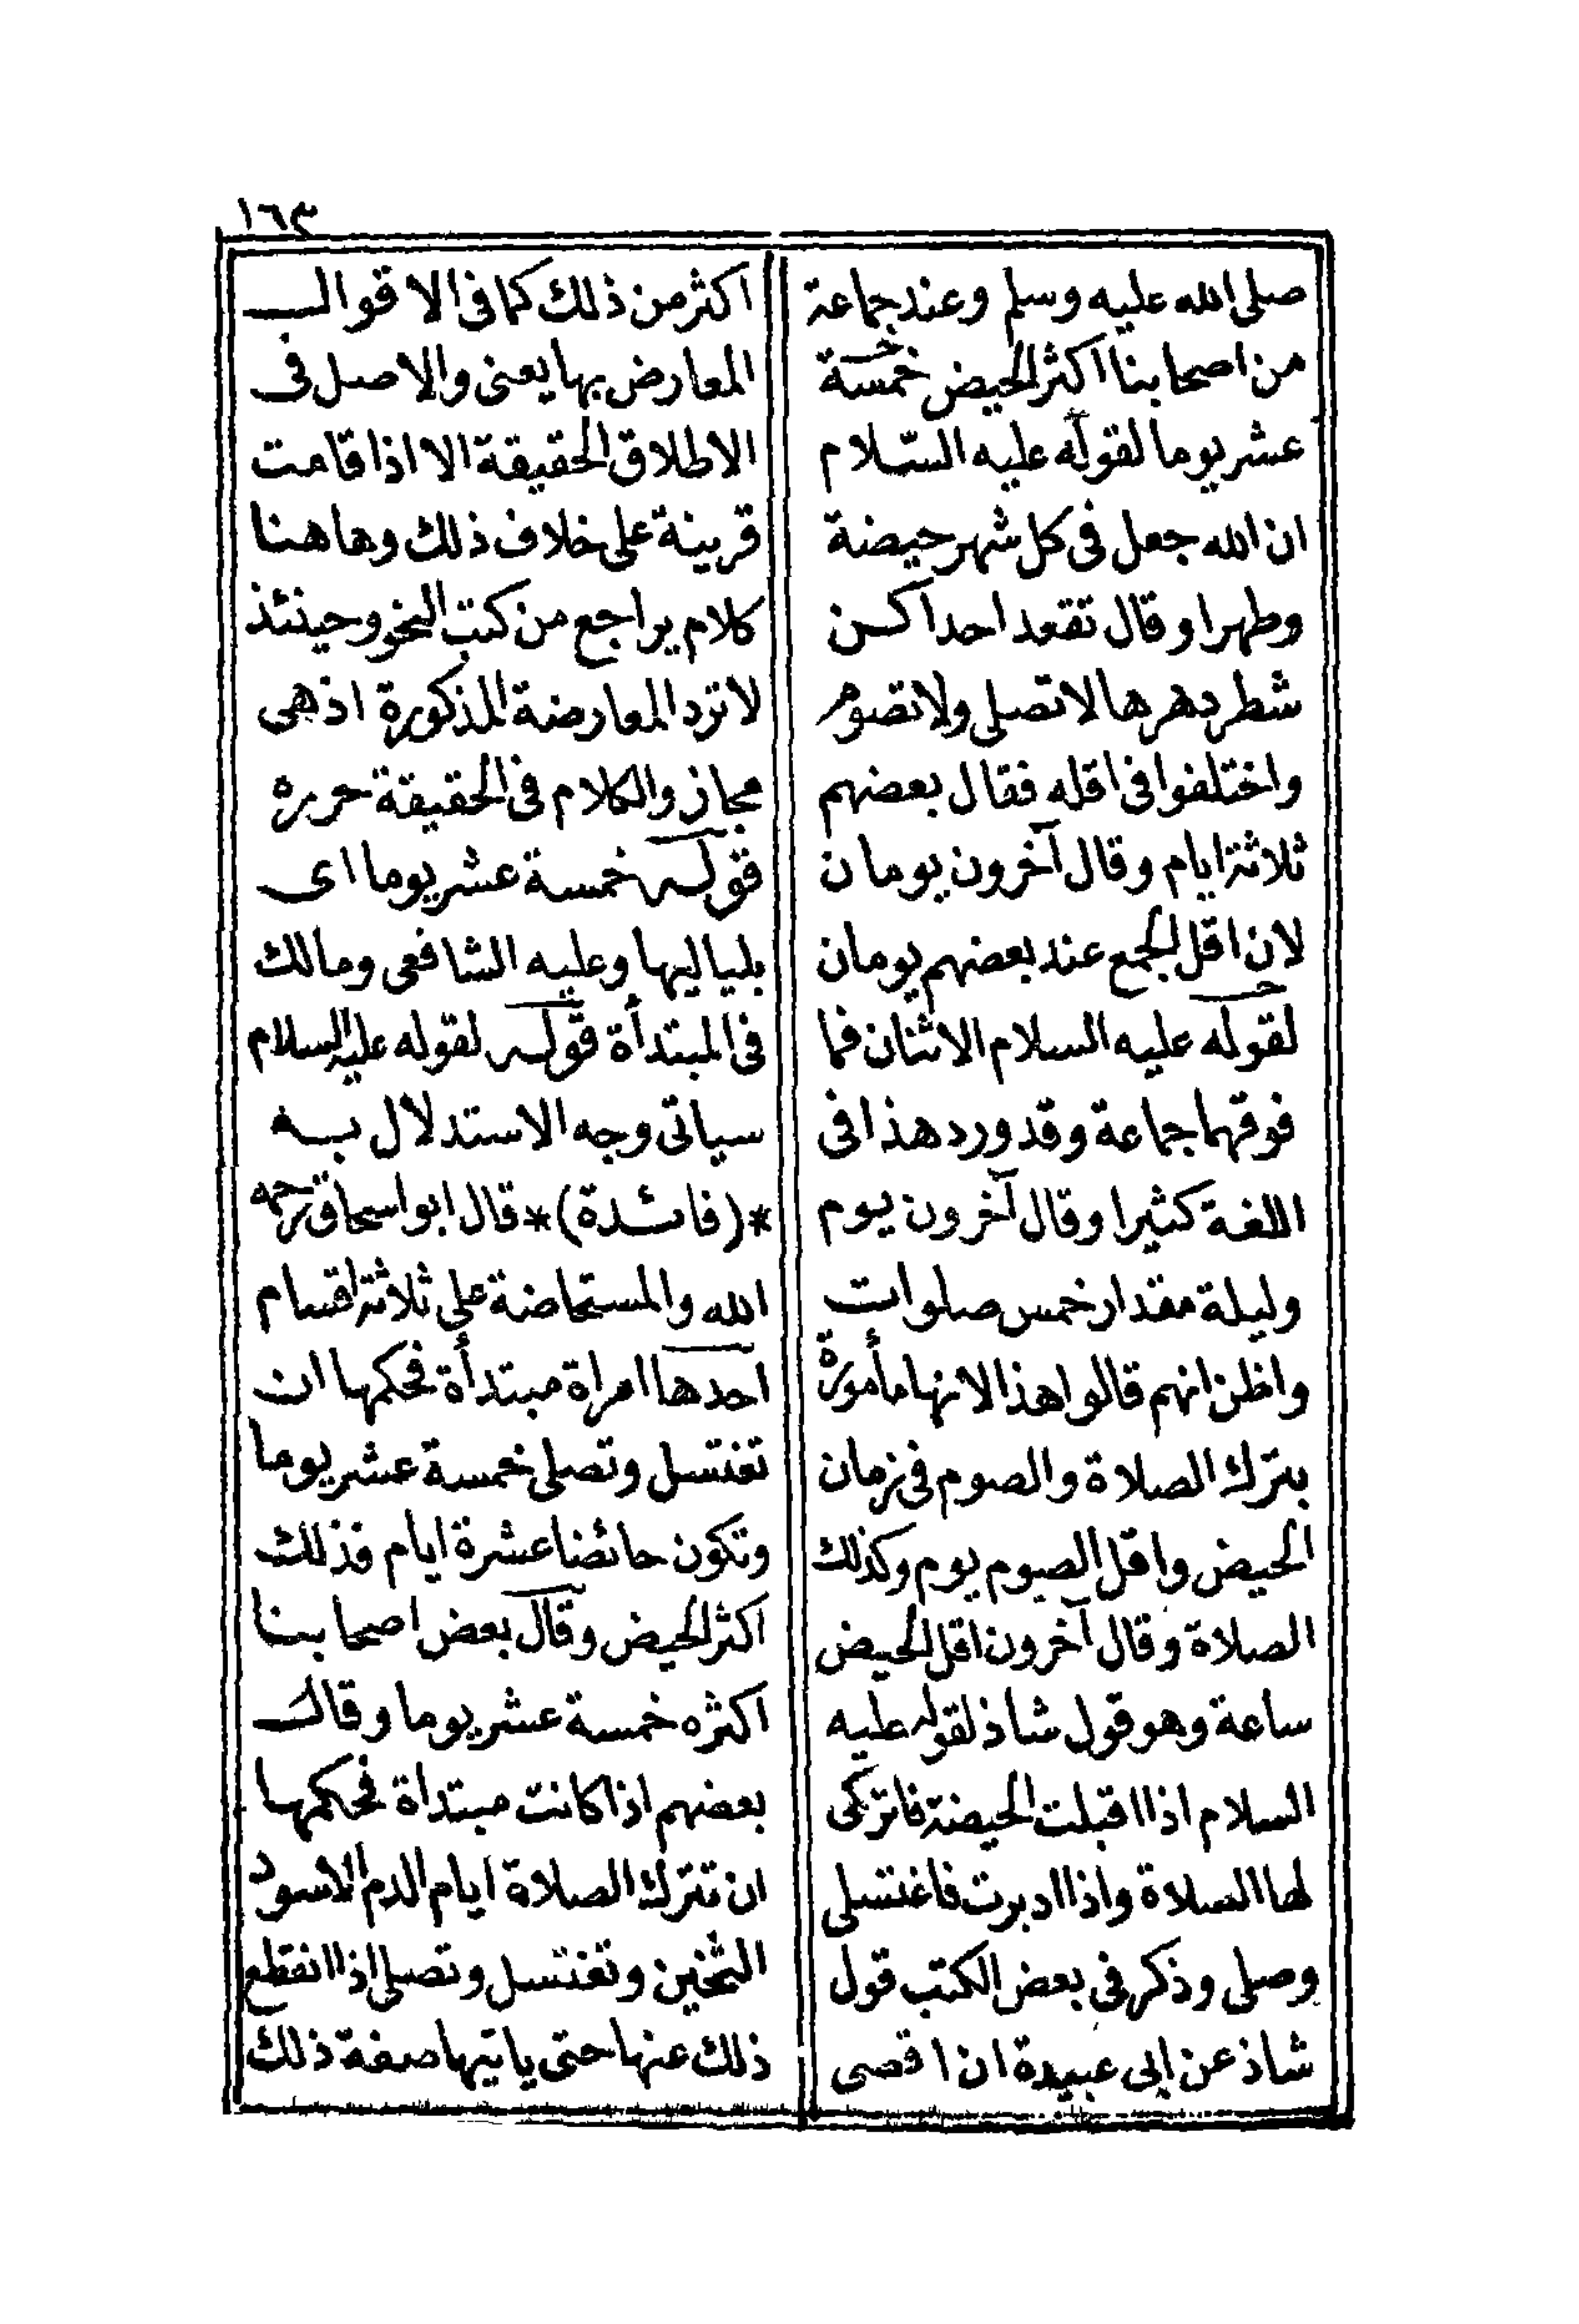 ١٦٣
صلى الله عليه وسلم وعند جماعة
من اصحابنا اكثر الحيض خمسة
عشر يوما لقوله عليه السّلام
ان الله جعل فى كل شهر حيضة
وطهرا وقال تقعد احداكن
شطر دهرها لا تصلى ولا تصوم
واختلفوا فى اقله فقال بعضهم
ثلاثة ايام وقال آخرون يومان
لان اقل الجمع عند بعضهم يومان
لقوله عليه السلام الاثنان فما
فوقهما جماعة وقد ورد هذا فى
اللغة كثيرا وقال آخرون يوم
وليلة مقدار خمس صلوات
واظن انهم قالوا هذا لانها مأمورة
بترك الصلاة والصوم فى زمان
الحيض واقل الصوم يوم وكذلك
الصلاة وقال آخرون اقل الحيض
ساعة وهو قول شاذ لقوله عليه
السلام اذا اقبلت الحيضة فاتركى
لها الصلاة واذا ادبرت فاغتسلى
وصلى وذكر فى بعض الكتب قول
شاذ عن ابى عبيدة ان اقصى
اكثر من ذلك كما فى الاقوال
المعارض بها يعنى والاصل فى
الاطلاق الحقيقة الا اذا قامت
قرينة على خلاف ذلك وهاهنا
كلام يراجع من كتب النحو وحينئذ
لا ترد المعارضة المذكورة اذ هى
مجاز والكلام فى الحقيقة حرره
قوله خمسة عشر يوما اى
بلياليها وعليه الشافعى ومالك
فى المبتدأة قوله لقوله عليه السلام
سياتى وجه الاستدلال به
*(فائدة)* قال ابو اسحاق رحمه
الله والمستحاضة على ثلاثة اقسام
احدها امراة مبتدأة فحكمها ان
تغتسل وتصلى خمسة عشر يوما
وتكون حائضا عشرة ايام فذلك
اكثر الحيض وقال بعض اصحابنا
اكثره خمسة عشر يوما وقال
بعضهم اذا كانت مبتداة فحكمها
ان تترك الصلاة ايام الدم الاسود
الثخين وتغتسل وتصلى اذا انقطع
ذلك عنها حتى ياتيها صفة ذلك